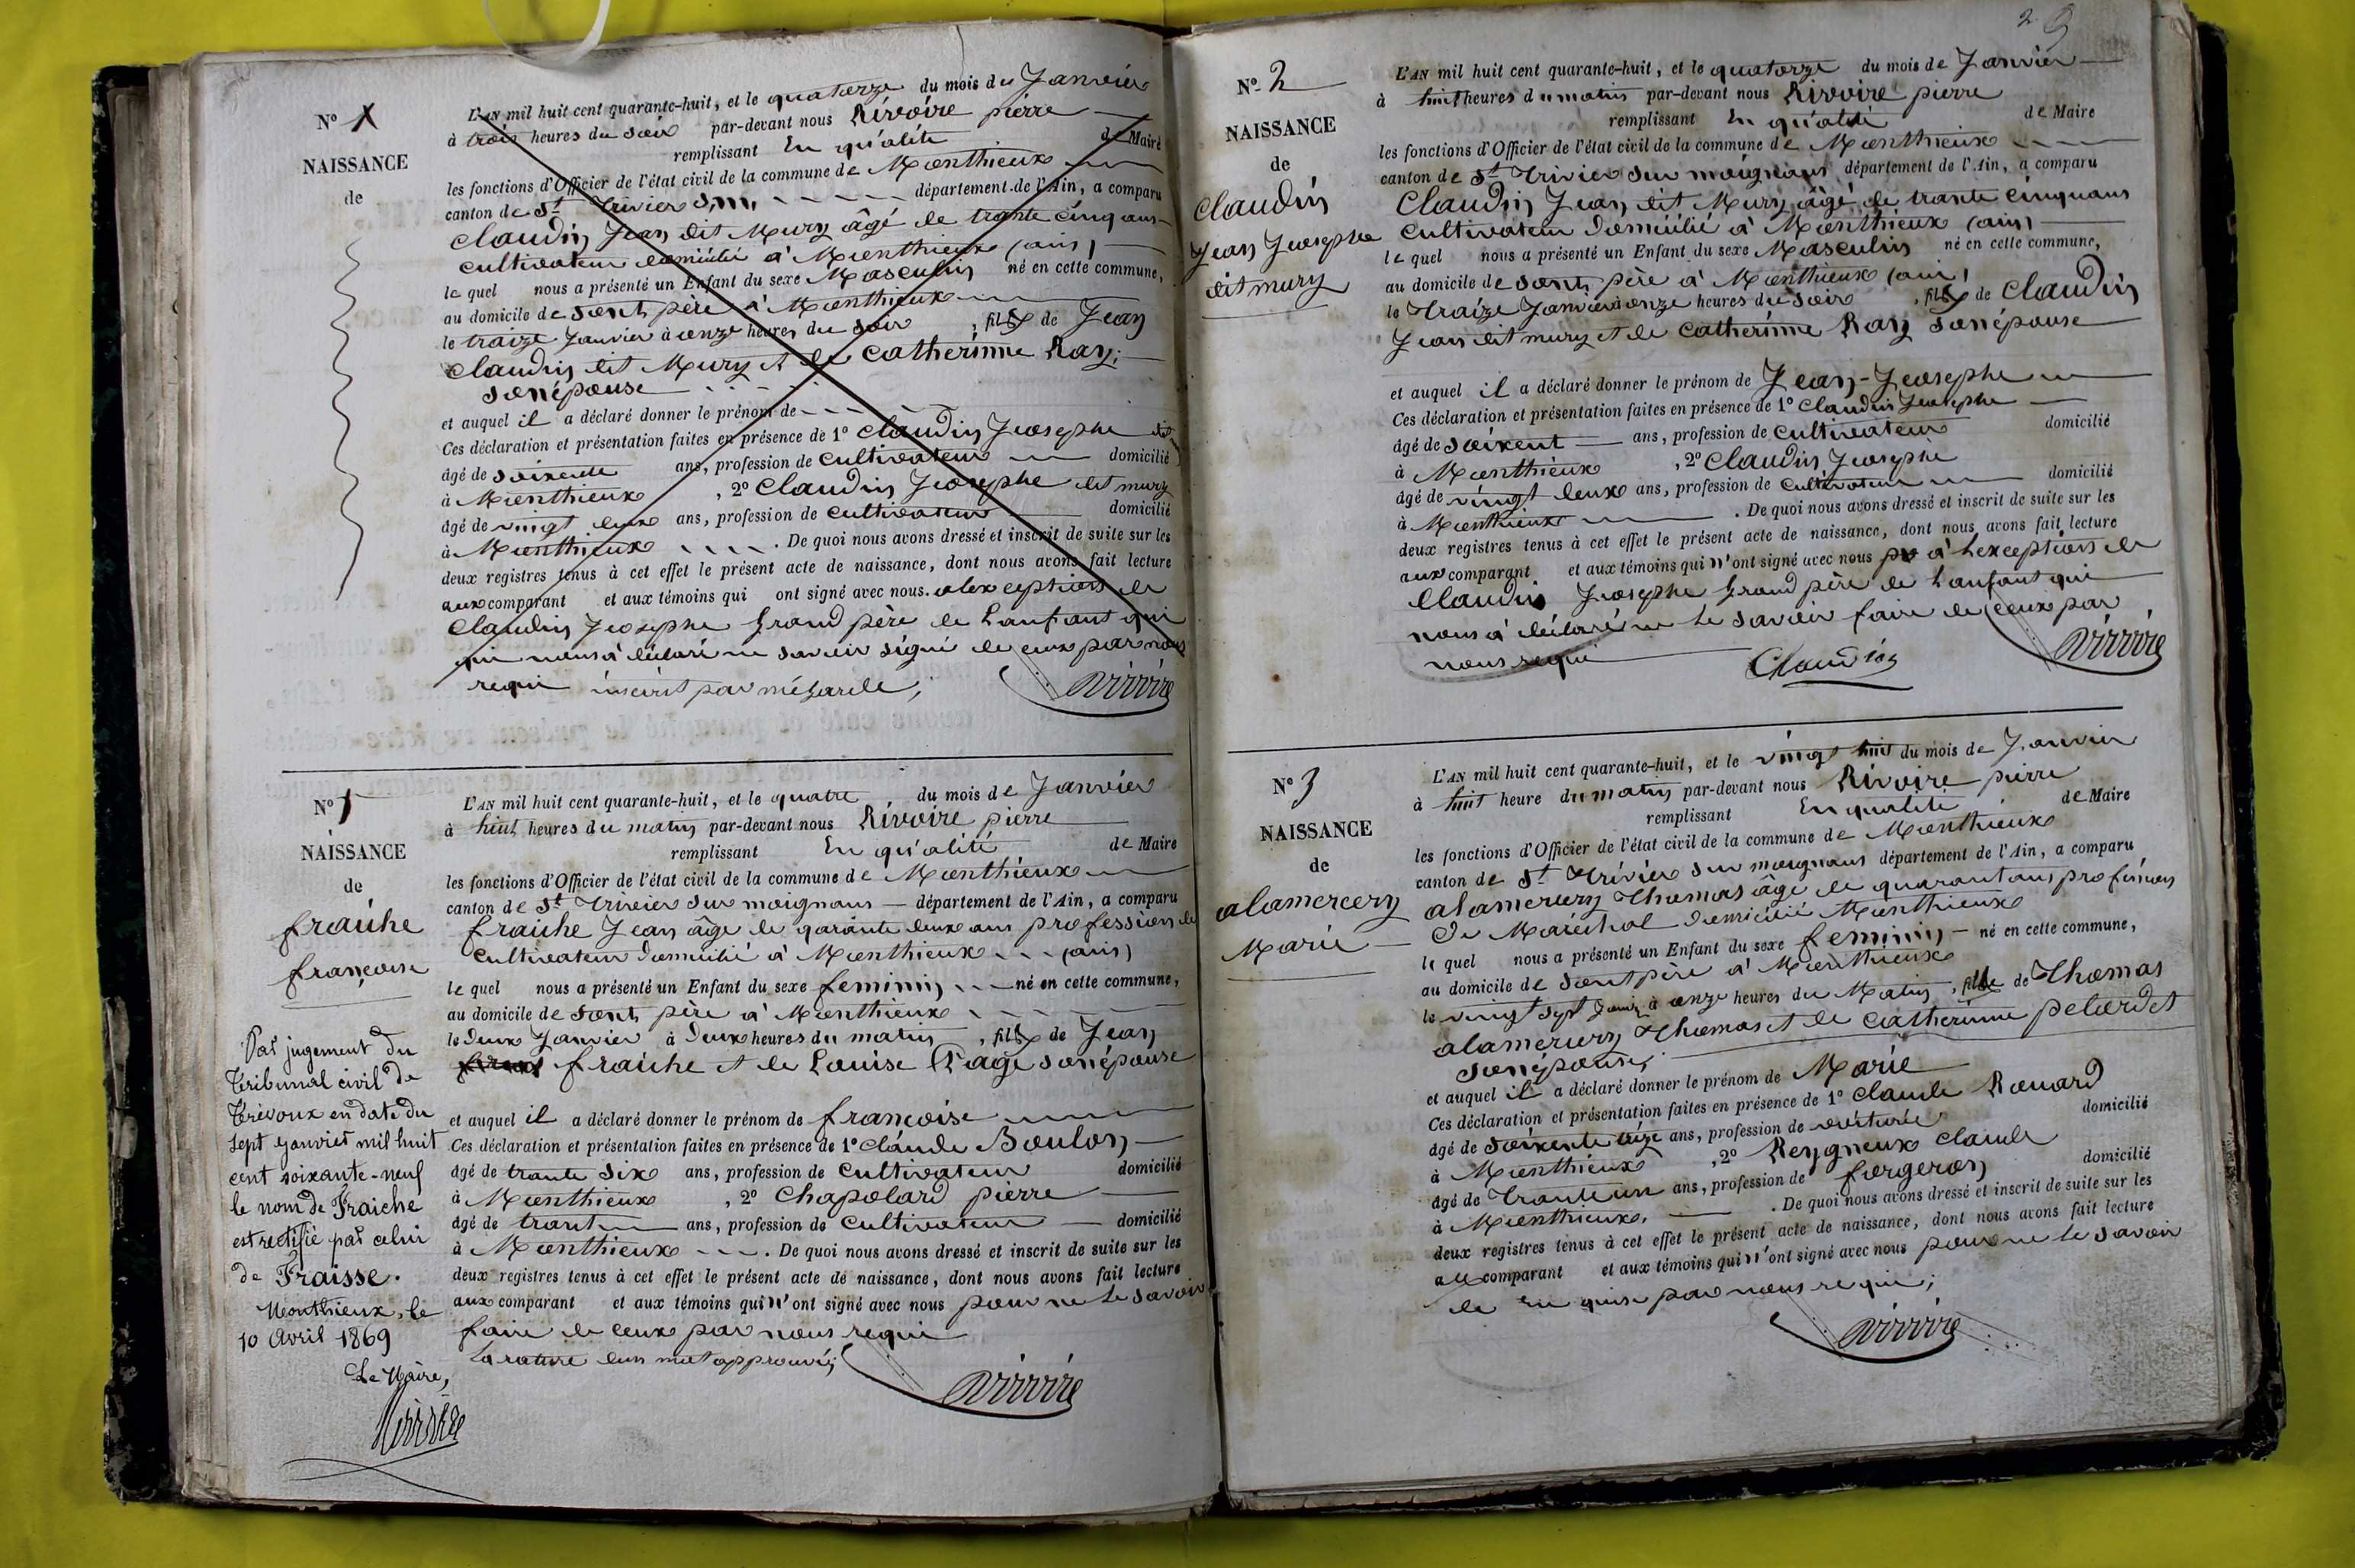 N° X
NAISSANCE
de
L'AN mil huit cent quarante-huit, et le quatorze du mois de Janvier
à trois heures du soir par-devant nous Rivoire pierre
remplissant En qu'alité de Maire
les fonctions d'Officier de l'état civil de la commune de Monthieux
canton de St Trivier département de l'Ain, a comparu
Claudin Jean dit Mury âgé de trante cinq ans
cultivateur domicilié à Monthieux (ain)
le quel nous a présenté un Enfant du sexe Masculin né en cette commune,
au domicile de sont père à Monthieux
le traize Janvier à onze heures du soir , fils de Jean
Claudin dit Mury et de Catherinne Ray;
sonépouse
et auquel il a déclaré donner le prénom de
Ces déclaration et présentation faites en présence de 1° Claudin Jeosephe dit
âgé de soixente ans, profession de cultivateur domicilié
à Monthieux , 2° Claudin Jeosephe dit mury
âgé de vingt deux ans, profession de cultivateur domicilié
à Monthieux . De quoi nous avons dressé et inscrit de suite sur les
deux registres tenus à cet effet le présent acte de naissance, dont nous avons fait lecture
aux comparant et aux témoins qui ont signé avec nous. alexception de
Claudin Jeosephe Grand père de Lanfant qui
qui nous à déclaré ne savoir signé de ceux par nous
requi inscrit par mégarde;
Rivoire
N° 1
NAISSANCE
de
fraiche
françoise
Par jugement du
Tribunal civil de
Trévoux en date du
sept janvier mil huit
cent soixante-neuf
le nom de Fraiche
est rectifié par celui
de Fraisse.
Monthieux, le
10 avril 1869
Le Maire,
Rivoire
L'AN mil huit cent quarante-huit, et le quatre du mois de Janvier
à huit heures du matin par-devant nous Rivoire pierre
remplissant En qu'alité de Maire
les fonctions d'Officier de l'état civil de la commune de Monthieux
canton de St Trivier sur moignans département de l'Ain, a comparu
fraiche Jean âge de garante deux ans profession de
cultivateur domicilié à Monthieux (ain)
le quel nous a présenté un Enfant du sexe feminin né en cette commune,
au domicile de sont père à Monthieux
le Deux Janvier à Deux heures du matin , fill de Jean
fraiche et de Louise Page sonépouse
et auquel il a déclaré donner le prénom de françoise
Ces déclaration et présentation faites en présence de 1° Claude Boulon
âgé de trante six ans, profession de cultivateur domicilié
à Monthieux , 2° Chapolard pierre
âgé de trant ans, profession de cultivateur domicilié
à Monthieux . De quoi nous avons dressé et inscrit de suite sur les
deux registres tenus à cet effet le présent acte de naissance, dont nous avons fait lecture
aux comparant et aux témoins qui n'ont signé avec nous pour ne le savoir
faire de ceux par nous requi
La rature dun mot approuvé;
Rivoire
29
N° 2
NAISSANCE
de
Claudin
Jean Jeosephe
dit mury
L'AN mil huit cent quarante-huit, et le quatorze du mois de Janvier
à huit heures du matin par-devant nous Rivoire pierre
remplissant En qu'alité de Maire
les fonctions d'Officier de l'état civil de la commune de Monthieux
canton de St Trivier sur moignans département de l'Ain, a comparu
Claudin Jean dit Mury âgé de trante cinquans
Cultivateur Domicilié à Monthieux (ain)
le quel nous a présenté un Enfant du sexe Masculin né en cette commune,
au domicile de sont père à Monthieux (ain)
le traize Janvier à onze heures du soir , fils de Claudin
Jean dit mury et de Catherinne Ray sonépouse
et auquel il a déclaré donner le prénom de Jean-Jeosephe
Ces déclaration et présentation faites en présence de 1° Claudin Jeosephe
âgé de soixent ans, profession de cultivateur domicilié
à Monthieux , 2° Claudin Jeosephe
âgé de vingt deux ans, profession de cultivateur domicilié
à Monthieux . De quoi nous avons dressé et inscrit de suite sur les
deux registres tenus à cet effet le présent acte de naissance, dont nous avons fait lecture
aux comparant et aux témoins qui n'ont signé avec nous à Lexception de
Claudin Jeosephe Grand père de Lanfant qui
nous à déclaré ne le savoir faire de ceux par
nous requi
Claudin
Rivoire
N° 3
NAISSANCE
de
alamercery
Marie
L'AN mil huit cent quarante-huit, et le vingt huit du mois de Janvier
à huit heure du matin par-devant nous Rivoire pierre
remplissant En qualité de Maire
les fonctions d'Officier de l'état civil de la commune de Monthieux
canton de St Trivier sur moignans département de l'Ain, a comparu
alamercery Thomas âge de quarant ans profession
De Maréchal Domicilié Monthieux
le quel nous a présenté un Enfant du sexe feminin né en cette commune,
au domicile de sont père à Monthieux
le vingt sept à onze heures du Matin , fille de Thomas
alamercery Thomas et de Catherinne pelardet
sonépouse;
et auquel il a déclaré donner le prénom de Marie
Ces déclaration et présentation faites en présence de 1° Claude Rouard
âgé de soixente ans, profession de domicilié
à Monthieux , 2° Reygneux Claude
âgé de trante un ans, profession de forgeron domicilié
à Monthieux. . De quoi nous avons dressé et inscrit de suite sur les
deux registres tenus à cet effet le présent acte de naissance, dont nous avons fait lecture
au comparant et aux témoins qui n'ont signé avec nous pour ne le savoir
de par nous requi;
Rivoire